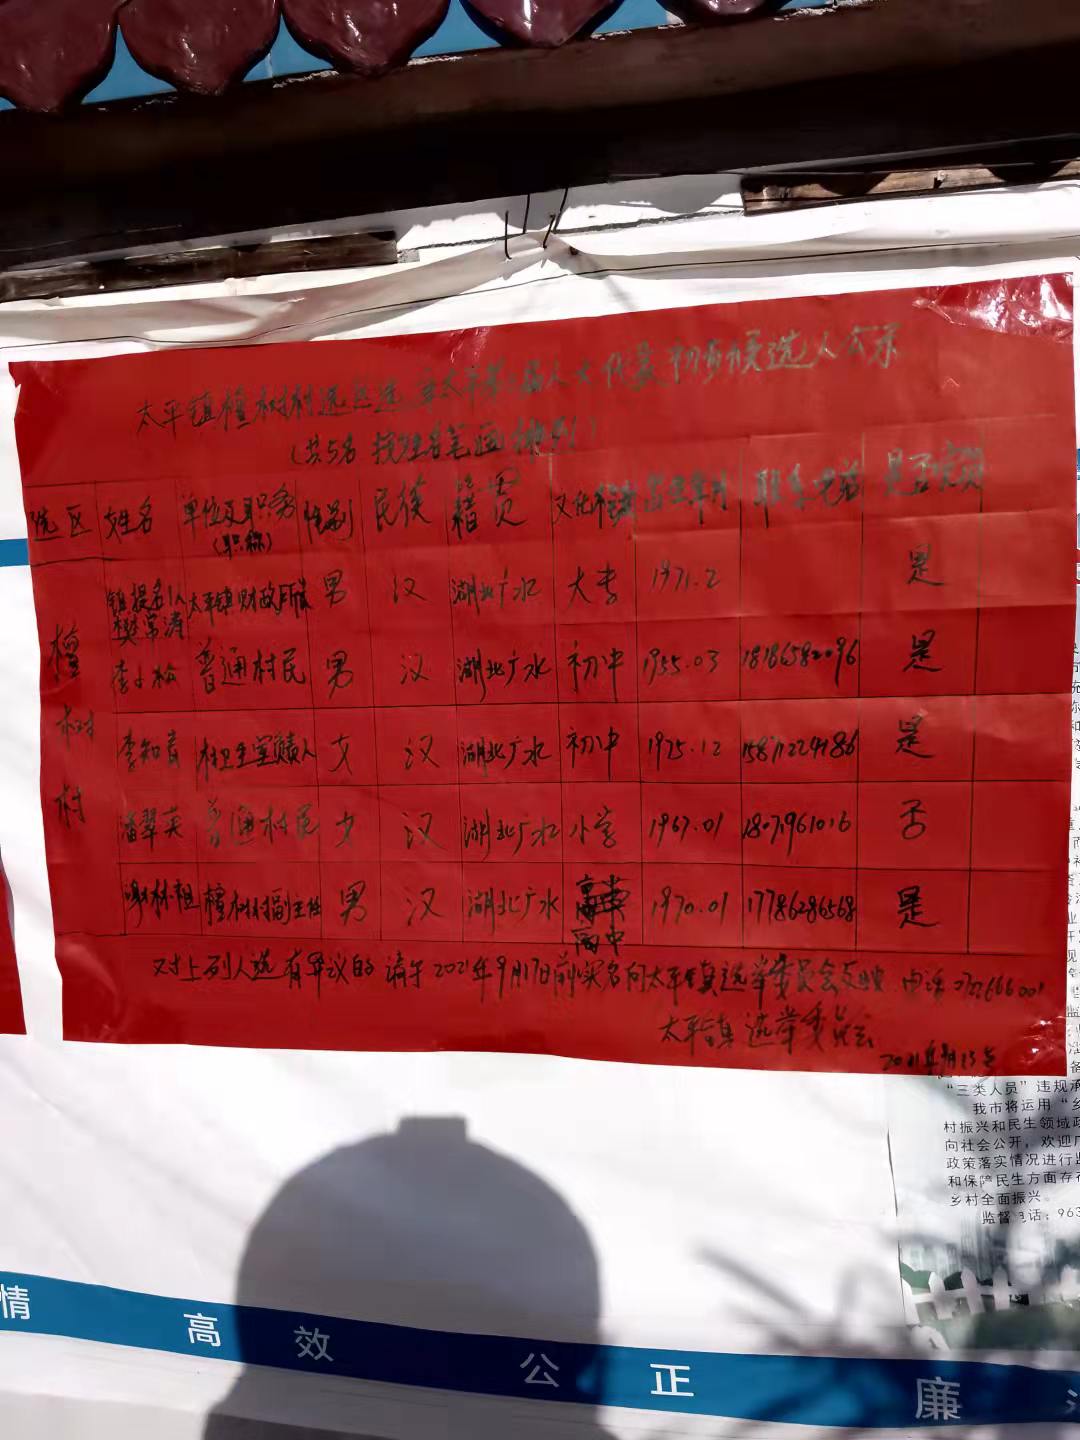 太平镇檀树村选区选举太平第 届人大代表初步候选人公示
(共5名 按姓名笔画排列)
选区 姓名 单位及职务(职称) 性别 民族 籍贯 文化程度 出生年月 联系电话 是否党员
檀树村
镇提名人 樊常涛 太平镇财政所 男 汉 湖北广水 大专 1971.2 是
李小松 普通村民 男 汉 湖北广水 初中 1955.03 18186582096 是
李知音 村卫生室负责人 女 汉 湖北广水 初中 1975.12 是
潘翠英 普通村民 女 汉 湖北广水 小学 1967.01 否
谢林祖 檀树村副主任 男 汉 湖北广水 高中 1970.01 17786286568 是
对上列人选有异议的请于2021年9月17日前实名向太平镇选举委员会反映 电话
太平镇选举委员会
2021年9月13号
“三类人员”违规
我市将运用“乡
村振兴和民生领域政
向社会公开，欢迎
政策落实情况进行监
和保障民生方面存
乡村全面振兴。
监督电话：963
情 高 效 公 正 廉